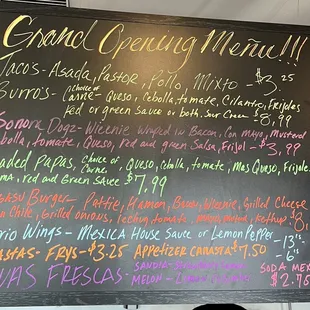 Grand Opening Menu!!!
Tacos - Asada, Pastor, Pollo, Mixto - $3.25
Burros - Choice of Carne - Queso, Cebolla, tomate, Cilantro, Frijoles
Red or green Sauce or both, Sour Cream $8.99
Sonora Dogz - Wieenie Wraped in Bacon, Con mayo, Mustard
bolla, tomate, Queso, Red and green Salsa, Frijol - $3.99
aded Papas, Choice of Carne, Queso, Cebolla, tomate, Mas Queso, Frijole
Red and Green Sauce $7.99
Burger - Pattie, Hamon, Bacon, Wieenie, Grilled Cheese
Chile, Grilled onions, Ketchup $8
rio Wings - Mexica House Sauce or Lemon Pepper - 13"
6"
ASTAS - FRYS - $3.25 Appetizer Canasta $7.50
UAS FRESCAS - SANDIA
MELON - SODA MEX
$2.75